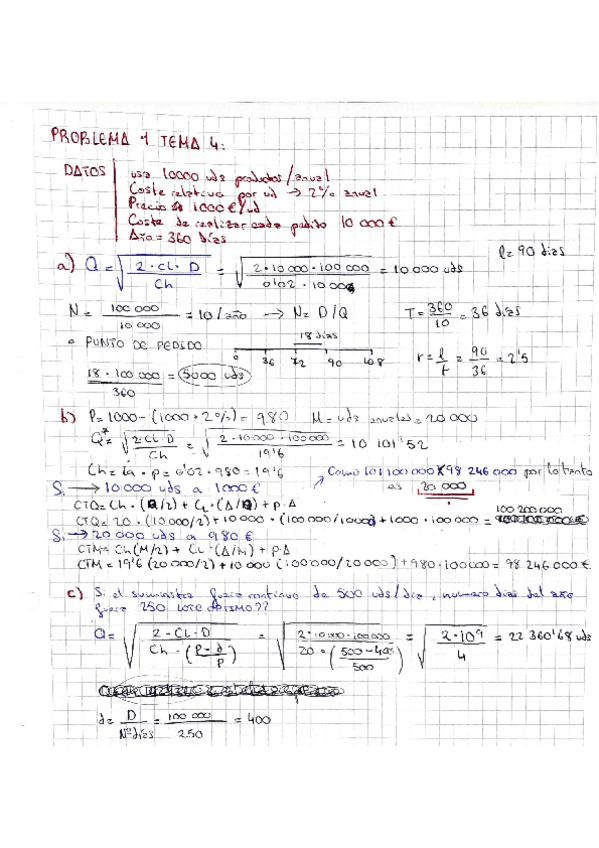 PROBLEMA 1 TEMA 4:
DATOS
usa 10000 uds productos/anual
Coste relativo por ud → 2% anual
Precio 1000€/ud
Coste de realizar cada pedido 10 000 €
Año = 360 días
l = 90 días
a) Q = √(2·CL·D / Ch) = √(2·10 000·100 000 / 0'02·10 000) = 10 000 uds
N = 100 000 / 10 000 = 10/año → N = D/Q
T = 360/10 = 36 días
• PUNTO DE PEDIDO
18 días
0 36 72 90 108
r = l/t = 90/36 = 2'5
18·100 000 / 360 = 5000 uds
b) P = 1000 - (1000·2%) = 980 M = uds anuales = 20 000
Q* = √(2·CL·D / Ch) = √(2·10 000·100 000 / 19'6) = 10 101'52
Ch = la·p = 0'02·980 = 19'6
Como 101 100 000 X 98 246 000 por lo tanto
es 20 000
Si → 10 000 uds a 1000 €
CTQ = Ch·(Q/2) + CL·(Δ/Q) + p·Δ
100 200 000
CTQ = 20·(10 000/2) + 10 000·(100 000/10000) + 1000·100 000 =
Si → 20 000 uds a 980 €
CTM = Ch(M/2) + CL·(Δ/M) + p·Δ
CTM = 19'6 (20 000/2) + 10 000 (100 000/20 000) + 980·100 000 = 98 246 000 €
c) Si el suministro fuera continuo de 500 uds/día, numero dias del año
fuera 250 Lote OPTIMO??
Q = √(2·CL·D / Ch·(P-d/P)) = √(2·10 000·100 000 / 20·(500-400/500)) = √(2·10⁹ / 4) = 22 360'68 uds
d = D / Nº días = 100 000 / 250 = 400